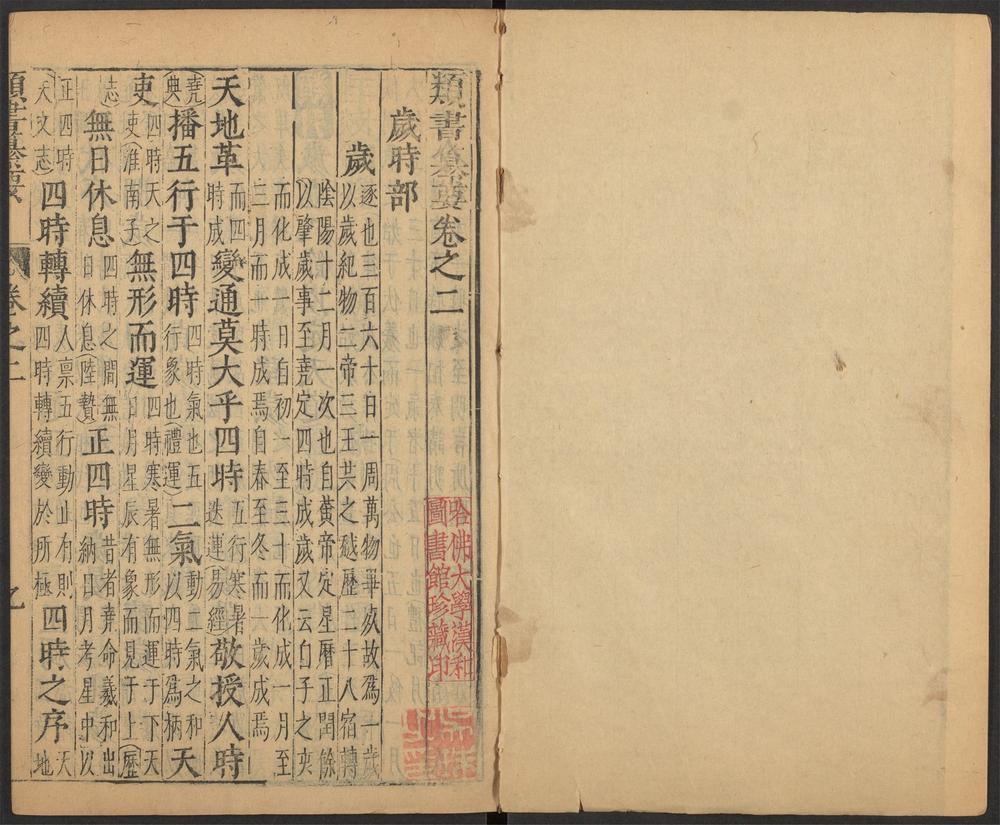 類書纂要卷之二
歲時部
歲逐也三百六十日一周萬物畢成故爲一歲
以歲紀物二帝三王共之越歷二十八宿轉
陰陽十二月一次也自黃帝定星曆正閏餘
以肇歲事至堯定四時成歲又云白子之夾
而化成一日自初一至三十而化成一月至
三月而一時成焉自春至冬而一歲成焉
天地革而四時成變通莫大乎四時五行寒暑迭運(易經)敬授人時
(堯典)播五行于四時四時氣也五行象也(禮運)二氣動二氣之和以四時爲柄天
吏四時天之吏(淮南子)無形而運四時寒暑無形而運于下天日月星辰有象而見于上(歷
志)無日休息四時之間無日休息(陸贄)正四時昔者堯命羲和出納日月考星中以
正四時天文志)四時轉續人禀五行動止有則四時轉續變於所極四時之序天地
類書纂要 卷之二 乙
哈佛大學漢和
圖書館珍藏印